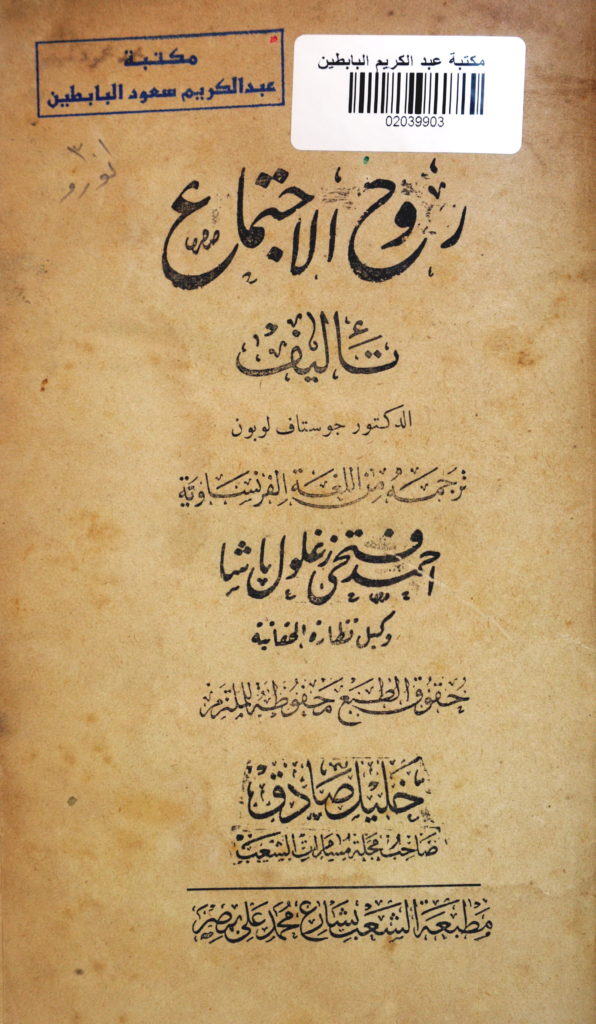 مكتبة
عبدالكريم سعود البابطين
مكتبة عبد الكريم البابطين
02039903
روح الاجتماع
تأليف
الدكتور جوستاف لوبون
ترجمه من اللغة الفرنساوية
احمد فتحي زغلول باشا
وكيل نظارة الحقانية
حقوق الطبع محفوظة للملتزم
خليل صادق
صاحب مجلة مسامرات الشعب
مطبعة الشعب بشارع محمد علي بمصر